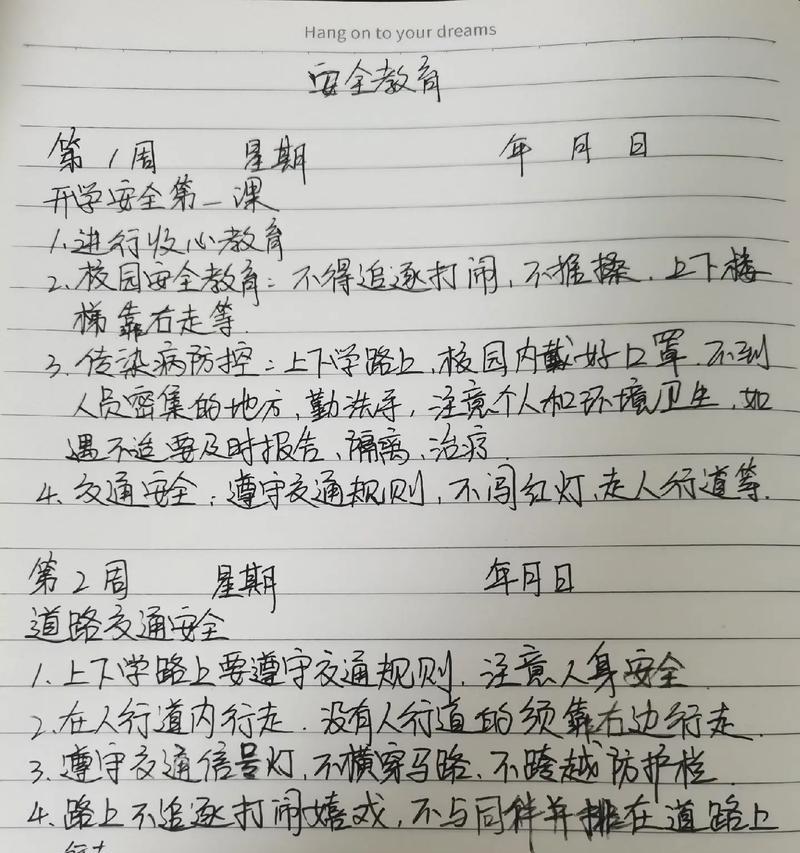 Hang on to your dreams
安全教育
第1周 星期 年 月 日
开学安全第一课
1.进行收心教育
2.校园安全教育：不得追逐打闹，不推搡，上下楼
梯靠右走等.
3.传染病防控：上下学路上，校园内戴好口罩.不到
人员密集的地方，勤洗手，注意个人和环境卫生，如
遇不适要及时报告、隔离、治疗.
4.交通安全：遵守交通规则，不闯红灯、走人行道等.
第2周 星期 年月日
道路交通安全
1.上下学路上要遵守交通规则，注意人身安全
2.在人行道内行走.没有人行道的须靠右边行走.
3.遵守交通信号灯，不横穿马路、不跨越防护栏.
4.路上不追逐打闹嬉戏，不与同伴并排在道路上